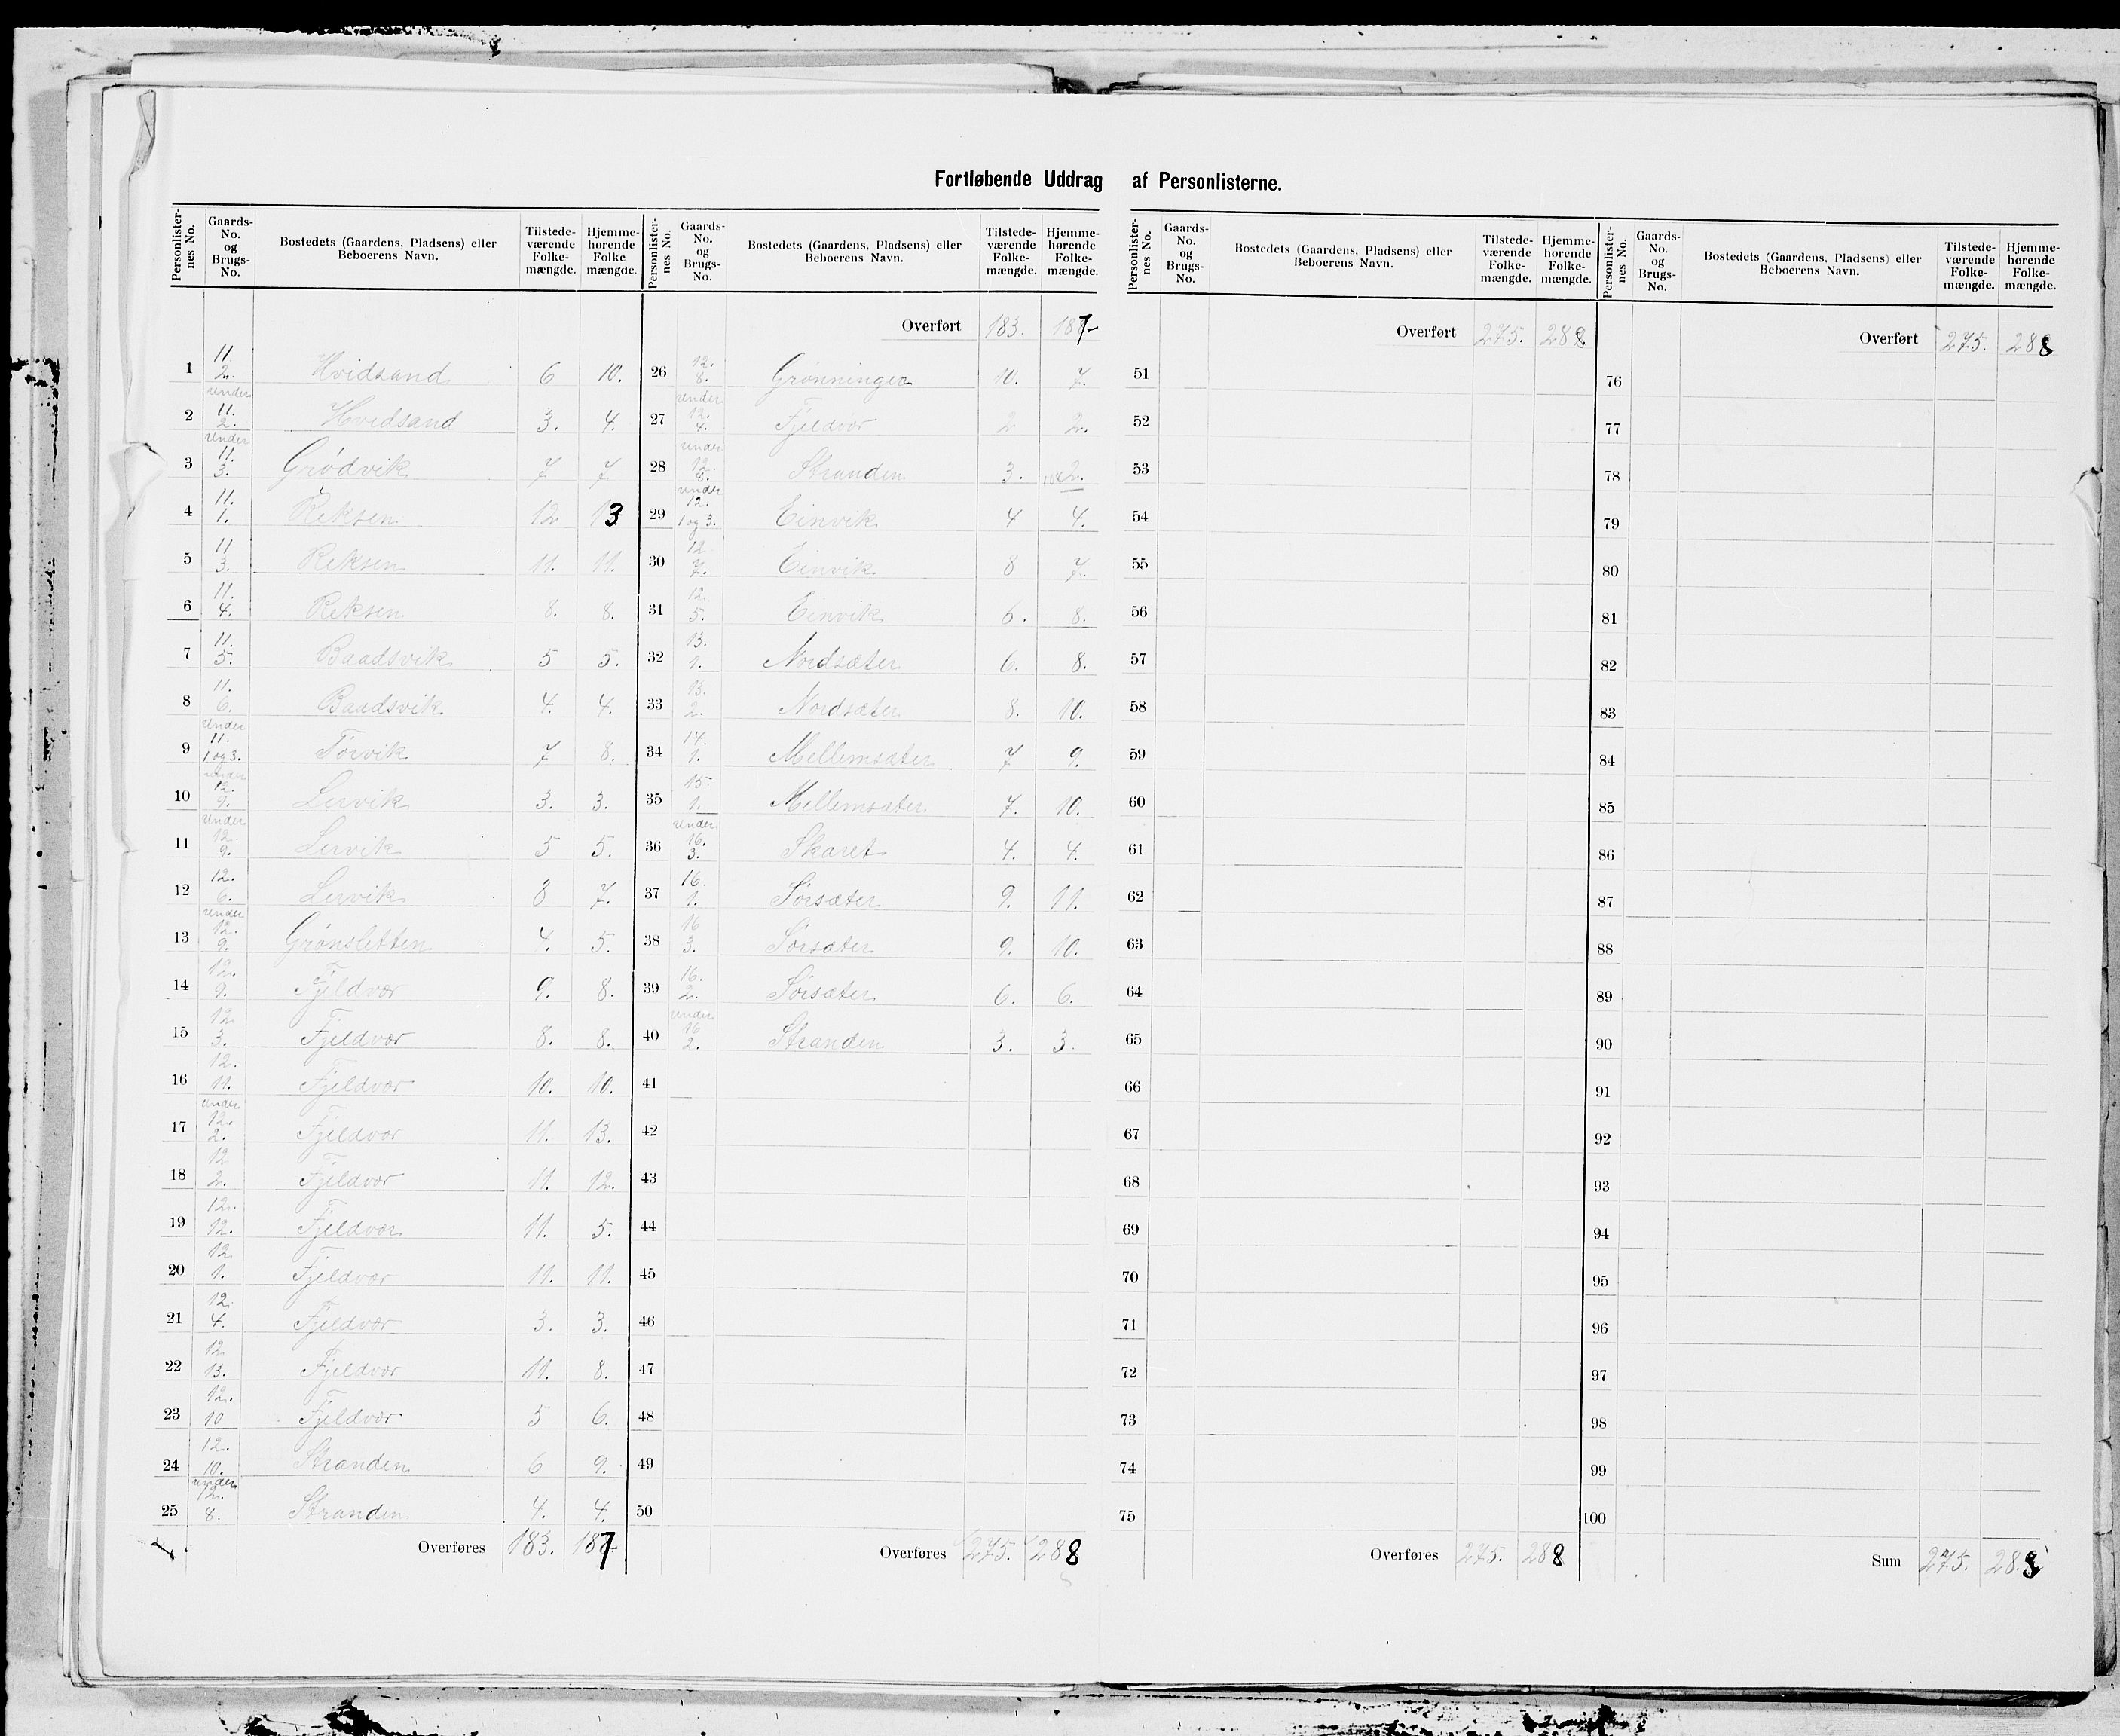 Fortløbende Uddrag af Personlisterne.
Personlister-nes No. | Gaards-No. og Brugs-No. | Bostedets (Gaardens, Pladsens) eller Beboerens Navn. | Tilstede-værende Folke-mængde. | Hjemme-hørende Folke mængde.
1 | 11 2. | Hvidsand | 6 | 10.
2 | under 11. 2. | Hvidsand | 3. | 4.
3 | under 11. 3. | Grødvik | 7 | 7.
4 | 11. 1. | Reksen | 12 | 13
5 | 11 3. | Reksen | 11. | 11.
6 | 11. 4. | Reksen | 8. | 8.
7 | 11. 5. | Baadsvik | 5 | 5.
8 | 11. 6. | Baadsvik | 4. | 4.
9 | under 11. 1 og 3. | Torvik | 7 | 8.
10 | under 12. 9. | Lervik | 3. | 3.
11 | under 12. 9. | Lervik | 5 | 5.
12 | 12. 6. | Lervik | 8 | 7.
13 | under 12. 9. | Grønsletten | 4. | 5.
14 | 12. 9. | Fjeldvær | 9. | 8.
15 | 12 3. | Fjeldvær | 8. | 8.
16 | 12. 11. | Fjeldvær | 10. | 10.
17 | under 12. 2. | Fjeldvær | 11. | 13.
18 | 12 2. | Fjeldvær | 11. | 12.
19 | 12. 12. | Fjeldvær | 11. | 5.
20 | 12 1. | Fjeldvær | 11. | 11.
21 | 12. 4. | Fjeldvær | 3. | 3.
22 | 12 13. | Fjeldvær | 11. | 8.
23 | 12. 10 | Fjeldvær | 5 | 6.
24 | 12. 10. | Stranden | 6 | 9.
25 | under 12. 8. | Stranden | 4. | 4.
Overføres | 183. | 187
Personlister-nes No. | Gaards-No. og Brugs-No. | Bostedets (Gaardens, Pladsens) eller Beboerens Navn. | Tilstede-værende Folke-mængde. | Hjemme-hørende Folke-mængde.
Overført | 183. | 187
26 | 12. 8. | Grønningen | 10. | 7.
27 | under 12. 4. | Fjeldvær | 2 | 2.
28 | under 12. 8. | Stranden | 3. | 2.
29 | under 12. 1 og 3. | Einvik | 4 | 4.
30 | 12 7. | Einvik | 8 | 7.
31 | 12. 5. | Einvik | 6. | 8.
32 | 13. 1. | Nordsæter | 6. | 8.
33 | 13. 2. | Nordsæter | 8. | 10.
34 | 14. 1. | Mellemsæter | 7 | 9.
35 | 15 1. | Mellemsæter | 7. | 10.
36 | under 16. 3. | Skaret | 4. | 4.
37 | 16. 1. | Sørsæter | 9. | 11.
38 | 16 3. | Sørsæter | 9. | 10.
39 | 16. 2. | Sørsæter | 6. | 6.
40 | under 16 2. | Stranden | 3. | 3.
41
42
43
44
45
46
47
48
49
50
Overføres | 275. | 288
Personlister-nes No. | Gaards-No. og Brugs-No. | Bostedets (Gaardens, Pladsens) eller Beboerens Navn. | Tilstede-værende Folke-mængde. | Hjemme-hørende Folke-mængde.
Overført | 275. | 288
51
52
53
54
55
56
57
58
59
60
61
62
63
64
65
66
67
68
69
70
71
72
73
74
75
Overføres | 275. | 288
Personlister-nes No. | Gaards-No. og Brugs-No. | Bostedets (Gaardens, Pladsens) eller Beboerens Navn. | Tilstede-værende Folke-mængde. | Hjemme-hørende Folke-mængde.
Overført | 275. | 288
76
77
78
79
80
81
82
83
84
85
86
87
88
89
90
91
92
93
94
95
96
97
98
99
100
Sum | 275. | 288